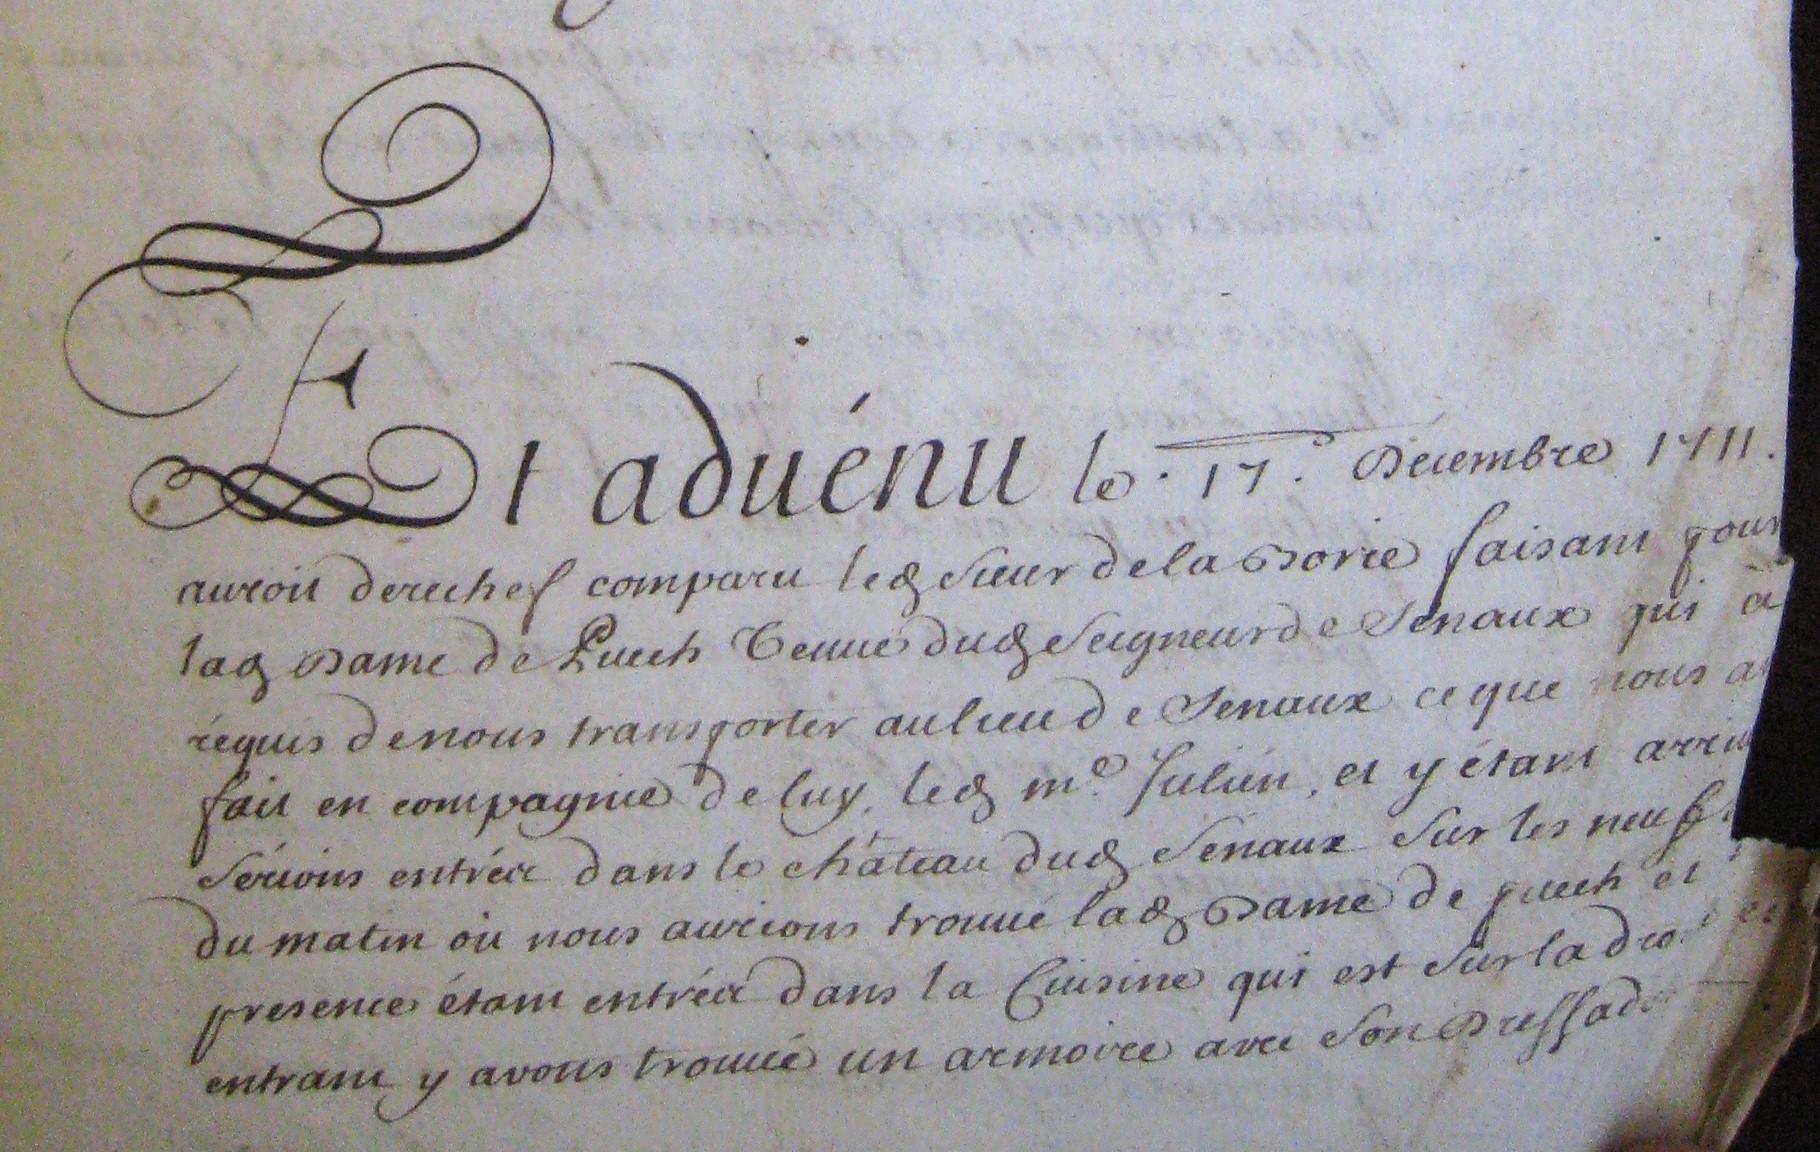 Et aduénu le . 17. Décembre 1711.
auroit derechef comparu led. sieur de la Dorie faisant pour
lad. Dame de Puech Veuue dud. Seigneur de Senaux qui à
réquis de nous transporter au lieu de Senaux ce que nous
fait en compagnie de luy, led. me. Julién, et y étant
sérions entréz dans le château dud. Senaux sur les neuf
du matin où nous aurions trouué lad. Dame de puech et
presence étant entréz dans la Cuisine qui est sur la
entrant y avons trouué un armoire avec son